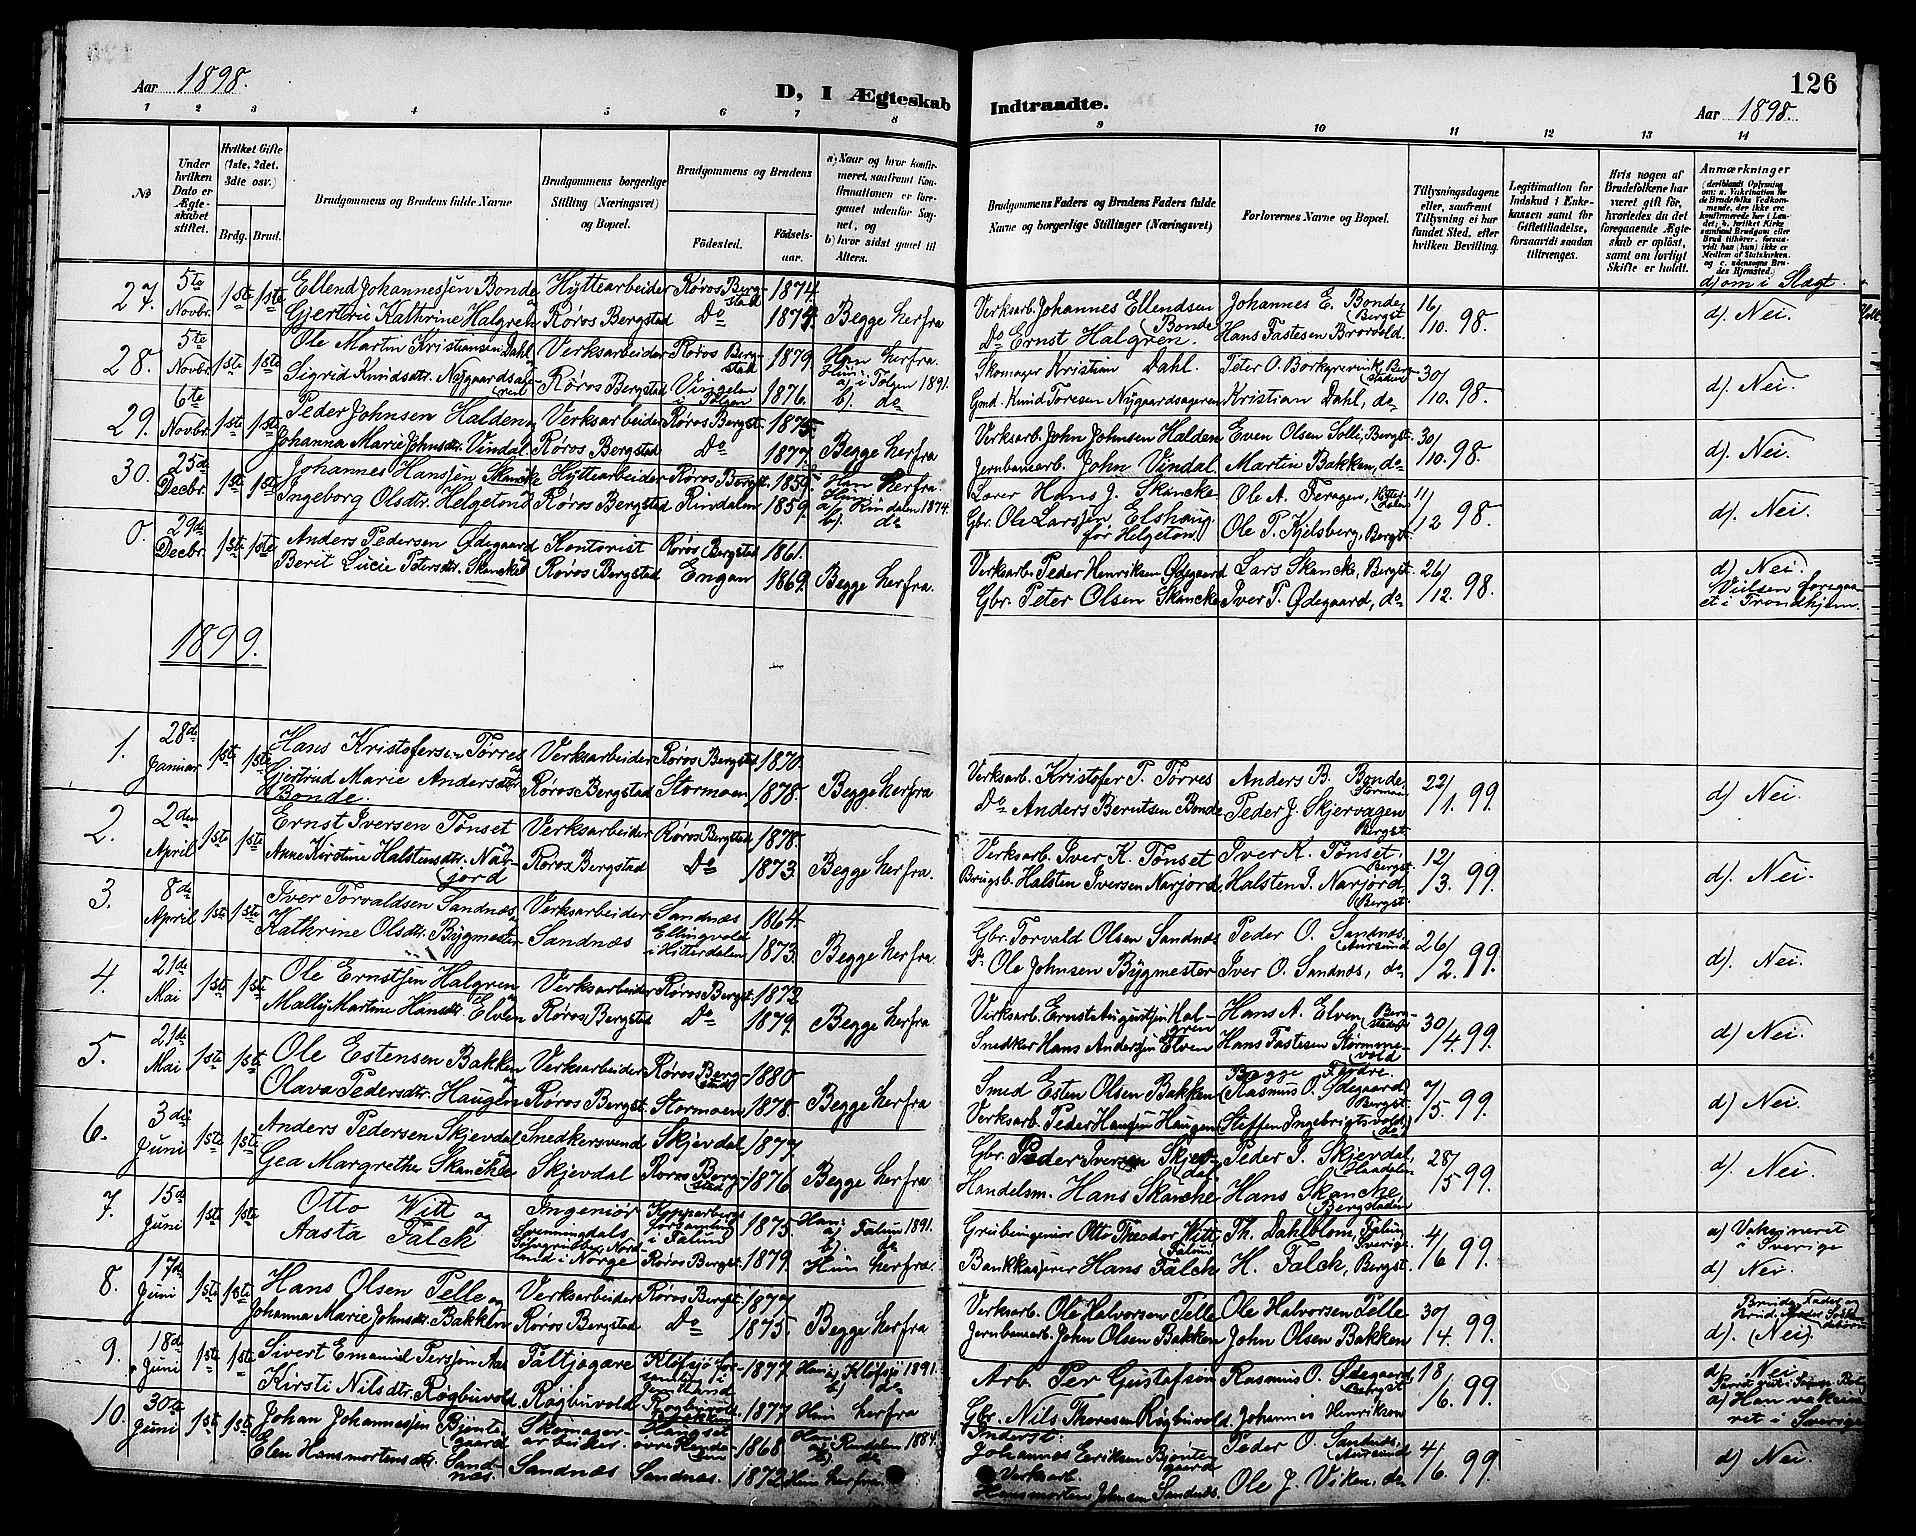 Aar 1898.
D, I Ægteskab
Indtraadte.
126
Aar 1898.
1 2 3 4 5 6 7 8
9 10 11 12 13 14
No
Under hvilken Dato er Ægteskabet stiftet.
Hvilket Gifte (1ste, 2det, 3die osv.)
Brdg. Brud.
Brudgommens og Brudens fulde Navne
Brudgommens borgerlige Stilling (Næringsvei) og Bopæl.
Brudgommens og Brudens
Fødested.
Fødselsaar.
a) Naar og hvor konfirmeret, saafremt Konfirmationen er foregaaet udenfor Sognet, og
b) hvor sidst gaaet til Alters.
Brudgommens Faders og Brudens Faders fulde Navne og borgerlige Stillinger (Næringsvei)
Forlovernes Navne og Bopæl.
Tillysningsdagene eller, saafremt Tillysning ei har fundet Sted, efter hvilken Bevilling.
Legitimation for Indskud i Enkekassen samt for Giftetilladelse, forsaavidt saadan tiltrænges.
Hvis nogen af Brudefolkene har været gift før, hvorledes da det foregaaende Ægteskab er opløst, samt om lovligt Skifte er holdt.
Anmærkninger
d) om i Slægt.
27. 5te Novbr. 1ste 1ste Ellend Johannessen Bonde Hyttearbeider Røros Bergstad 1874. Begge herfra Verksarb. Johannes Ellendsen Bonde Johannes E. Bonde, Bergst. 16/10. 98. d). Nei.
Gjertrie Kathrine Halgren Røros Bergstad Do 1874. Do Ernst Halgren. Hans Fastesen Brorvold.
28. 5te Novbr. 1ste 1ste Ole Martin Kristiansen Dahl, Verksarbeider Røros Bergstad 1879. Han herfra. Skomager Kristian Dahl. Peter O. Borkgrevink, Bergstaden 30/10. 98. d). Nei.
Sigrid Knudsdtr. Nygaardsageren Røros Bergstad Vingelen i Tolgen 1876. Hun: a) i Tolgen 1891. b). do Gmd. Knud Toresen Nygaardsageren Kristian Dahl, do
29. 6te Novbr. 1ste 1ste Peder Johnsen Halden Verksarbeider Røros Bergst. 1875. Begge herfra Verksarb. John Johnsen Halden Even Olsen Solli, Bergst. 30/10. 98. d). Nei.
Johanna Marie Johnsdtr. Vindal Røros Bergstad Do 1877. Jernbanearb. John Vindal. Martin Bakken, do
30. 25de Decbr. 1ste 1ste Johannes Hanssen Skancke Hyttearbeider Røros Bergst. Han herfra. Hans J. Skancke Ole A. Feragen, 11/12 98. d). Nei.
Ingeborg Olsdtr. Helgeton Røros Bergstad Rindalen 1859. Hun: a) Rindalen 1874. b). do Gbr. Ole Larssen Elshaug før Helgeton. Ole P. Kjelsberg, Bergst.
0. 29de Decbr. 1ste 1ste Anders Pedersen Ødegaard Kontorist Røros Bergstad 1861. Begge herfra. Verksarb. Peder Henriksen Ødegaard Lars Skancke, Bergst. 26/12. 98. d) Nei.
Berit Lucie Petersdtr. Skancke Røros Bergstad Engan 1869. Gbr. Peter Olsen Skancke Iver P. Ødegaard, do Vielsen foregaaet i Trondhjem.
1899.
1. 28de Januar 1ste 1ste Hans Kristofersen Tørres Verksarbeider Røros Bergstad 1870. Begge herfra Verksarb. Kristofer T. Tørres Anders B. Bonde, Stormoen 22/1. 99. d) Nei.
Gjertrud Marie Andersdtr. Bonde. Røros Bergstad Stormoen 1878. Do Anders Berntsen Bonde Peder J. Skjervagen Bergst.
2. 2den April 1ste 1ste Ernst Iversen Tønset Verksarbeider Røros Bergstad 1878. Begge herfra. Verksarb. Iver K. Tønset Iver K. Tønset, Bergst. 12/3. 99. d). Nei.
Anne Kirstine Halstensdtr. Narjord Røros Bergstad Do 1873. Brugsb. Halsten Iversen Narjord, Halsten I. Narjord, Bergst.
3. 8de April 1ste 1ste Iver Torvaldsen Sandnæs Verksarbeider Sandnæs 1864. Begge herfra. Gbr. Torvald Olsen Sandnæs Peder O. Sandnæs, Aursund 26/2. 99. d). Nei.
Kathrine Olsdtr. Bygmester Sandnæs Ellingvold i Hitterdalen 1873. Ole Johnsen Bygmester Iver O. Sandnæs, do
4. 21de Mai 1ste 1ste Ole Ernstsen Halgren Verksarbeider Røros Bergst. 1873 Begge herfra Verksarb. Ernst Augustsen Halgren Hans A. Elven, Bergstaden 30/4. 99. d) Nei.
Mally Martine Hansdtr. Elven Røros Bergstad Do 1879. Snedker Hans Anderssen Elven Hans Fastesen Stormmevold
5. 21de Mai 1ste 1ste Ole Estensen Bakken Verksarbeider Røros Bergstad 1880 Begge herfra Smed Esten Olsen Bakken Begge Fædre. Rasmus O. Ødegaard, Bergst. 7/5. 99. d) Nei.
Olava Pedersdtr. Haugen Røros Bergst. Stormoen 1878. Verksarb. Peder Hansen Haugen Steffen Ingebrigtsvold, do
6. 3die Juni 1ste 1ste Anders Pedersen Skjevdal Snedkersvend Skjevdal 1877 Begge herfra Gbr. Peder Iversen Skjevdal Peder I. Skjevdal, Glaadalen 28/5 99. d). Nei.
Gea Margrethe Skancke Skjevdal Røros Bergstad 1876 Handelsm. Hans Skancke Hans Skancke, Bergstaden
7. 15de Juni 1ste 1ste Otto Witt og Ingeniør Kopparbergs forsamling i Falun 1875. Han: a) Falun 1891. b). do Grubeingeniør Otto Theodor Witt Falun Th. Dahlblom, Falun, Sverige. 4/6 99. a) Vaksineret i Sverige
Aasta Falck Nordland i Norge Røros Bergst. 1879. Hun herfra. Bankkasserer Hans Falck H. Falck, Bergst. d) Nei.
8. 17de Juni 1ste 1ste Hans Olsen Pelle og Verksarbeider Røros Bergst. 1877 Begge herfra Verksarb. Ole Halvorsen Pelle Ole Halvorsen Pelle 30/4. 99.
Johanna Marie Johnsdtr. Bakken Røros Bergstad Do 1875. Jernbanearb. John Olsen Bakken John Olsen Bakken d). (Nei)
9. 18de Juni 1ste 1ste Sivert Emanuel Perssøn Aas Fältjägare Klöfsjö forsamling i Jemtland 1877 Han: a) Klöfsjö 1891. b) do Arb. Per Gustafson Rasmus O. Ødegaard, Bergst. 18/6. 99. d) Nei
Kirsti Nilsdtr. Røgbuvold Røgbuvold Røgbuvold 1877 Hun herfra Gbr. Nils Thoresen Røgbuvold Johannes Henrikson
10. 30te Juni 1ste 1ste Johan Johannessen Bjøntegaard Skomagerarbeider. Øvre Rendalen 1868 Han: a) Rendalen 1884. b) do Inderst: Johannes Eeriksen Bjøntegaard Peder O. Sandnæs, Aursund 4/6. 99. d) Nei.
Elen Hansmortensdtr. Sandnæs. Sandnæs Sandnæs. 1872 Hun herfra. Verksarb. Hansmorten Johnsen Sandnæs. Ole J. Viken, do